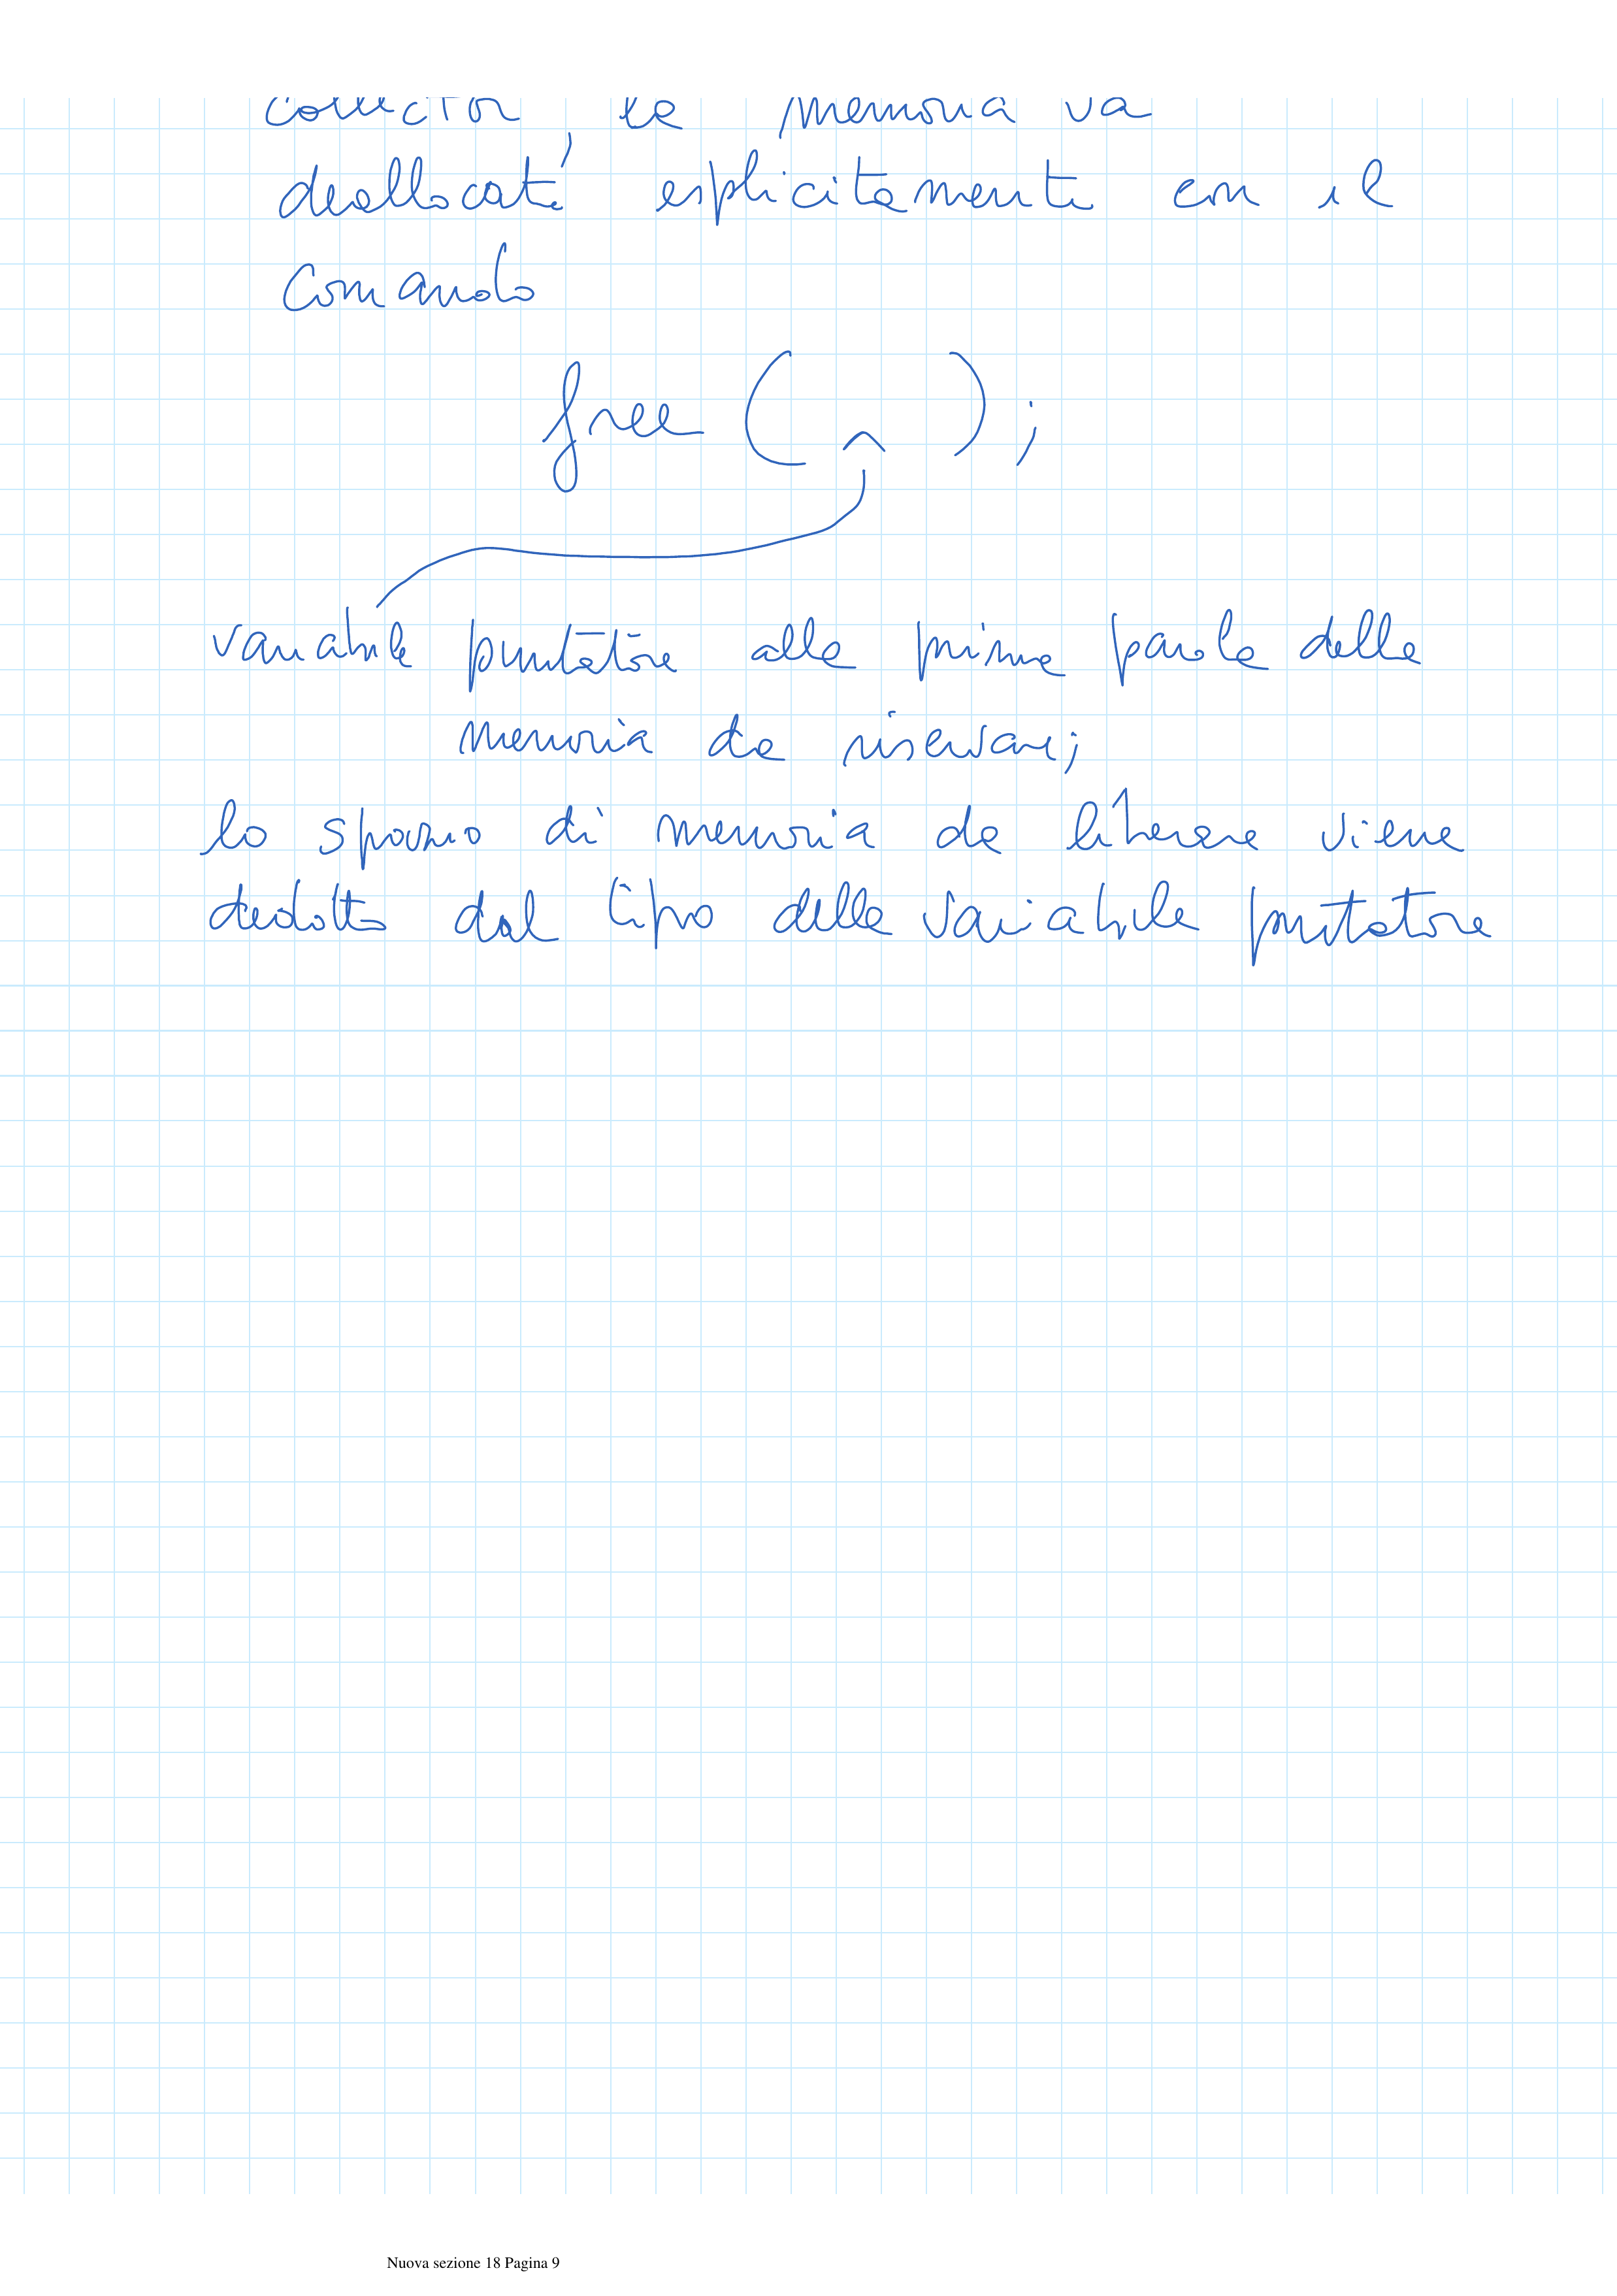 collector, la memoria va
deallocata esplicitamente con il
comando
free ( ^ ) ;
variabile puntatore alla prima parola della
memoria da riservare;
lo spazio di memoria da liberare viene
dedotto dal tipo della variabile puntatore
Nuova sezione 18 Pagina 9